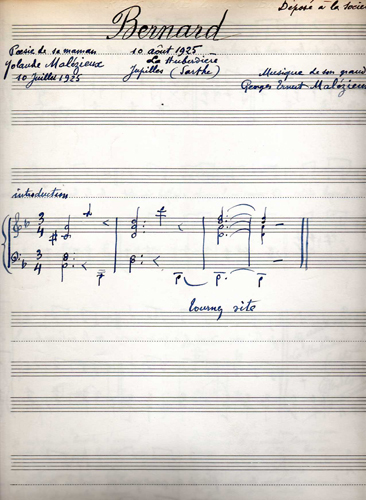 Déposé à la
Bernard
Poésie de sa maman
Yolande Malézieux
10 juillet 1925
10 août 1925
La Huberdière
Jupilles (Sarthe)
Musique de son
Georges Ernest
introduction
3
4
3
4
tournez vite